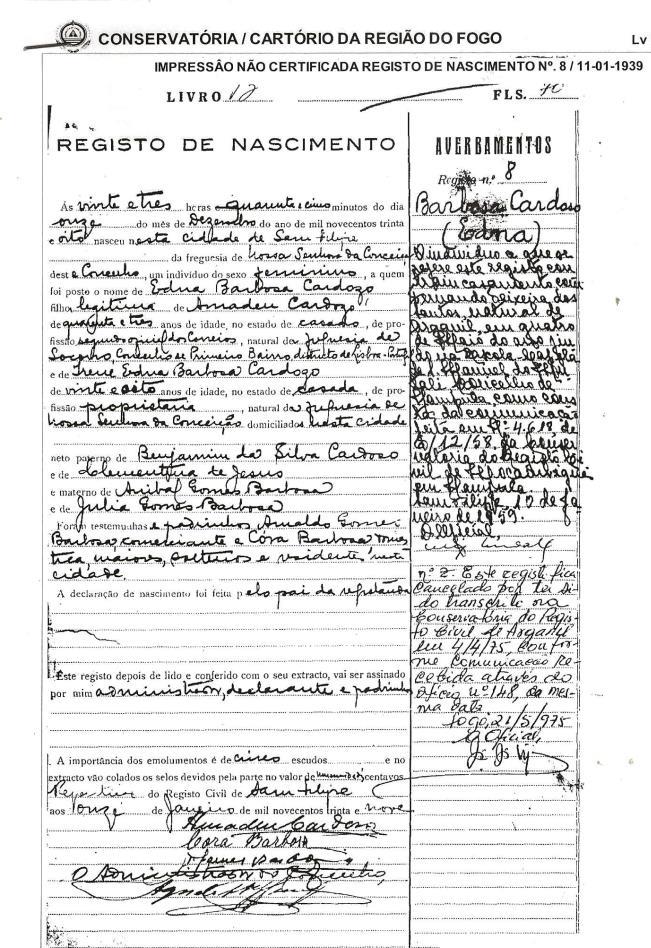 CONSERVATÓRIA / CARTÓRIO DA REGIÃO DO FOGO
Lv
IMPRESSÂO NÃO CERTIFICADA REGISTO DE NASCIMENTO Nº. 8 / 11-01-1939
LIVRO 12
FLS. 70
REGISTO DE NASCIMENTO
Às vinte e tres horas quarenta e cinco minutos do dia
onze do mês de Dezembro do ano de mil novecentos trinta
e oito nasceu nesta cidade de Sam Filipe
da freguesia de Nossa Senhora da Conceição
deste Concelho, um indivíduo do sexo feminino, a quem
foi posto o nome de Edna Barbosa Cardozo
filho legitima de Amadeu Cardozo
de quarenta e tres anos de idade, no estado de casado, de pro-
fissão segundo oficial dos Correios, natural da freguesia de
Socorro, Concelho de Primeiro Bairro, distrito de Lisboa
e de Irene Edna Barbosa Cardozo
de vinte e oito anos de idade, no estado de casada, de pro-
fissão proprietária, natural da freguesia de
Nossa Senhora da Conceição domiciliados nesta cidade
neto paterno de Benjamim da Silva Cardoso
e de Clementina de Jesus
e materno de Anibal Gomes Barbosa
e de Julia Gomes Barbosa
Foram testemunhas e padrinhos Arnaldo Gomes
Barbosa, comerciante e Córa Barbosa
maiores, solteiros e residentes nesta
cidade.
A declaração de nascimento foi feita pelo pai da
Este registo depois de lido e conferido com o seu extracto, vai ser assinado
por mim administrador, declarante e padrinhos
A importância dos emolumentos é de cinco escudos e no
extracto vão colados os selos devidos pela parte no valor de centavos
do Registo Civil de Sam Filipe
aos onze de Janeiro de mil novecentos trinta e nove
Amadeu Cardoso
Cora Barbosa
O Administrador do Concelho,
AVERBAMENTOS
Registo n.º 8
Barbosa Cardoso
(Edna)
O individuo a que se
refere este registo con-
traiu casamento com
Fernando Teixeira dos
Santos, natural de
Arganil, em quatro
de Maio do ano
de Nampula
Concelho de
Nampula como cons-
ta da comunicação
feita em nº 4.618 de
/12/58, da Conser-
vatoria do Registo Ci-
vil de
em Nampula.
Sam Filipe, 10 de Ja-
neiro de 1959.
O Oficial,
nº 2. Este registo fica
cancelado por ter si-
do transcrito na
Conservatória do Regis-
to Civil de Arganil
em 4/4/75, confor-
me comunicação re-
cebida através do
ofício nº 148, da mes-
ma data
Fogo, 21/5/975
O Oficial,